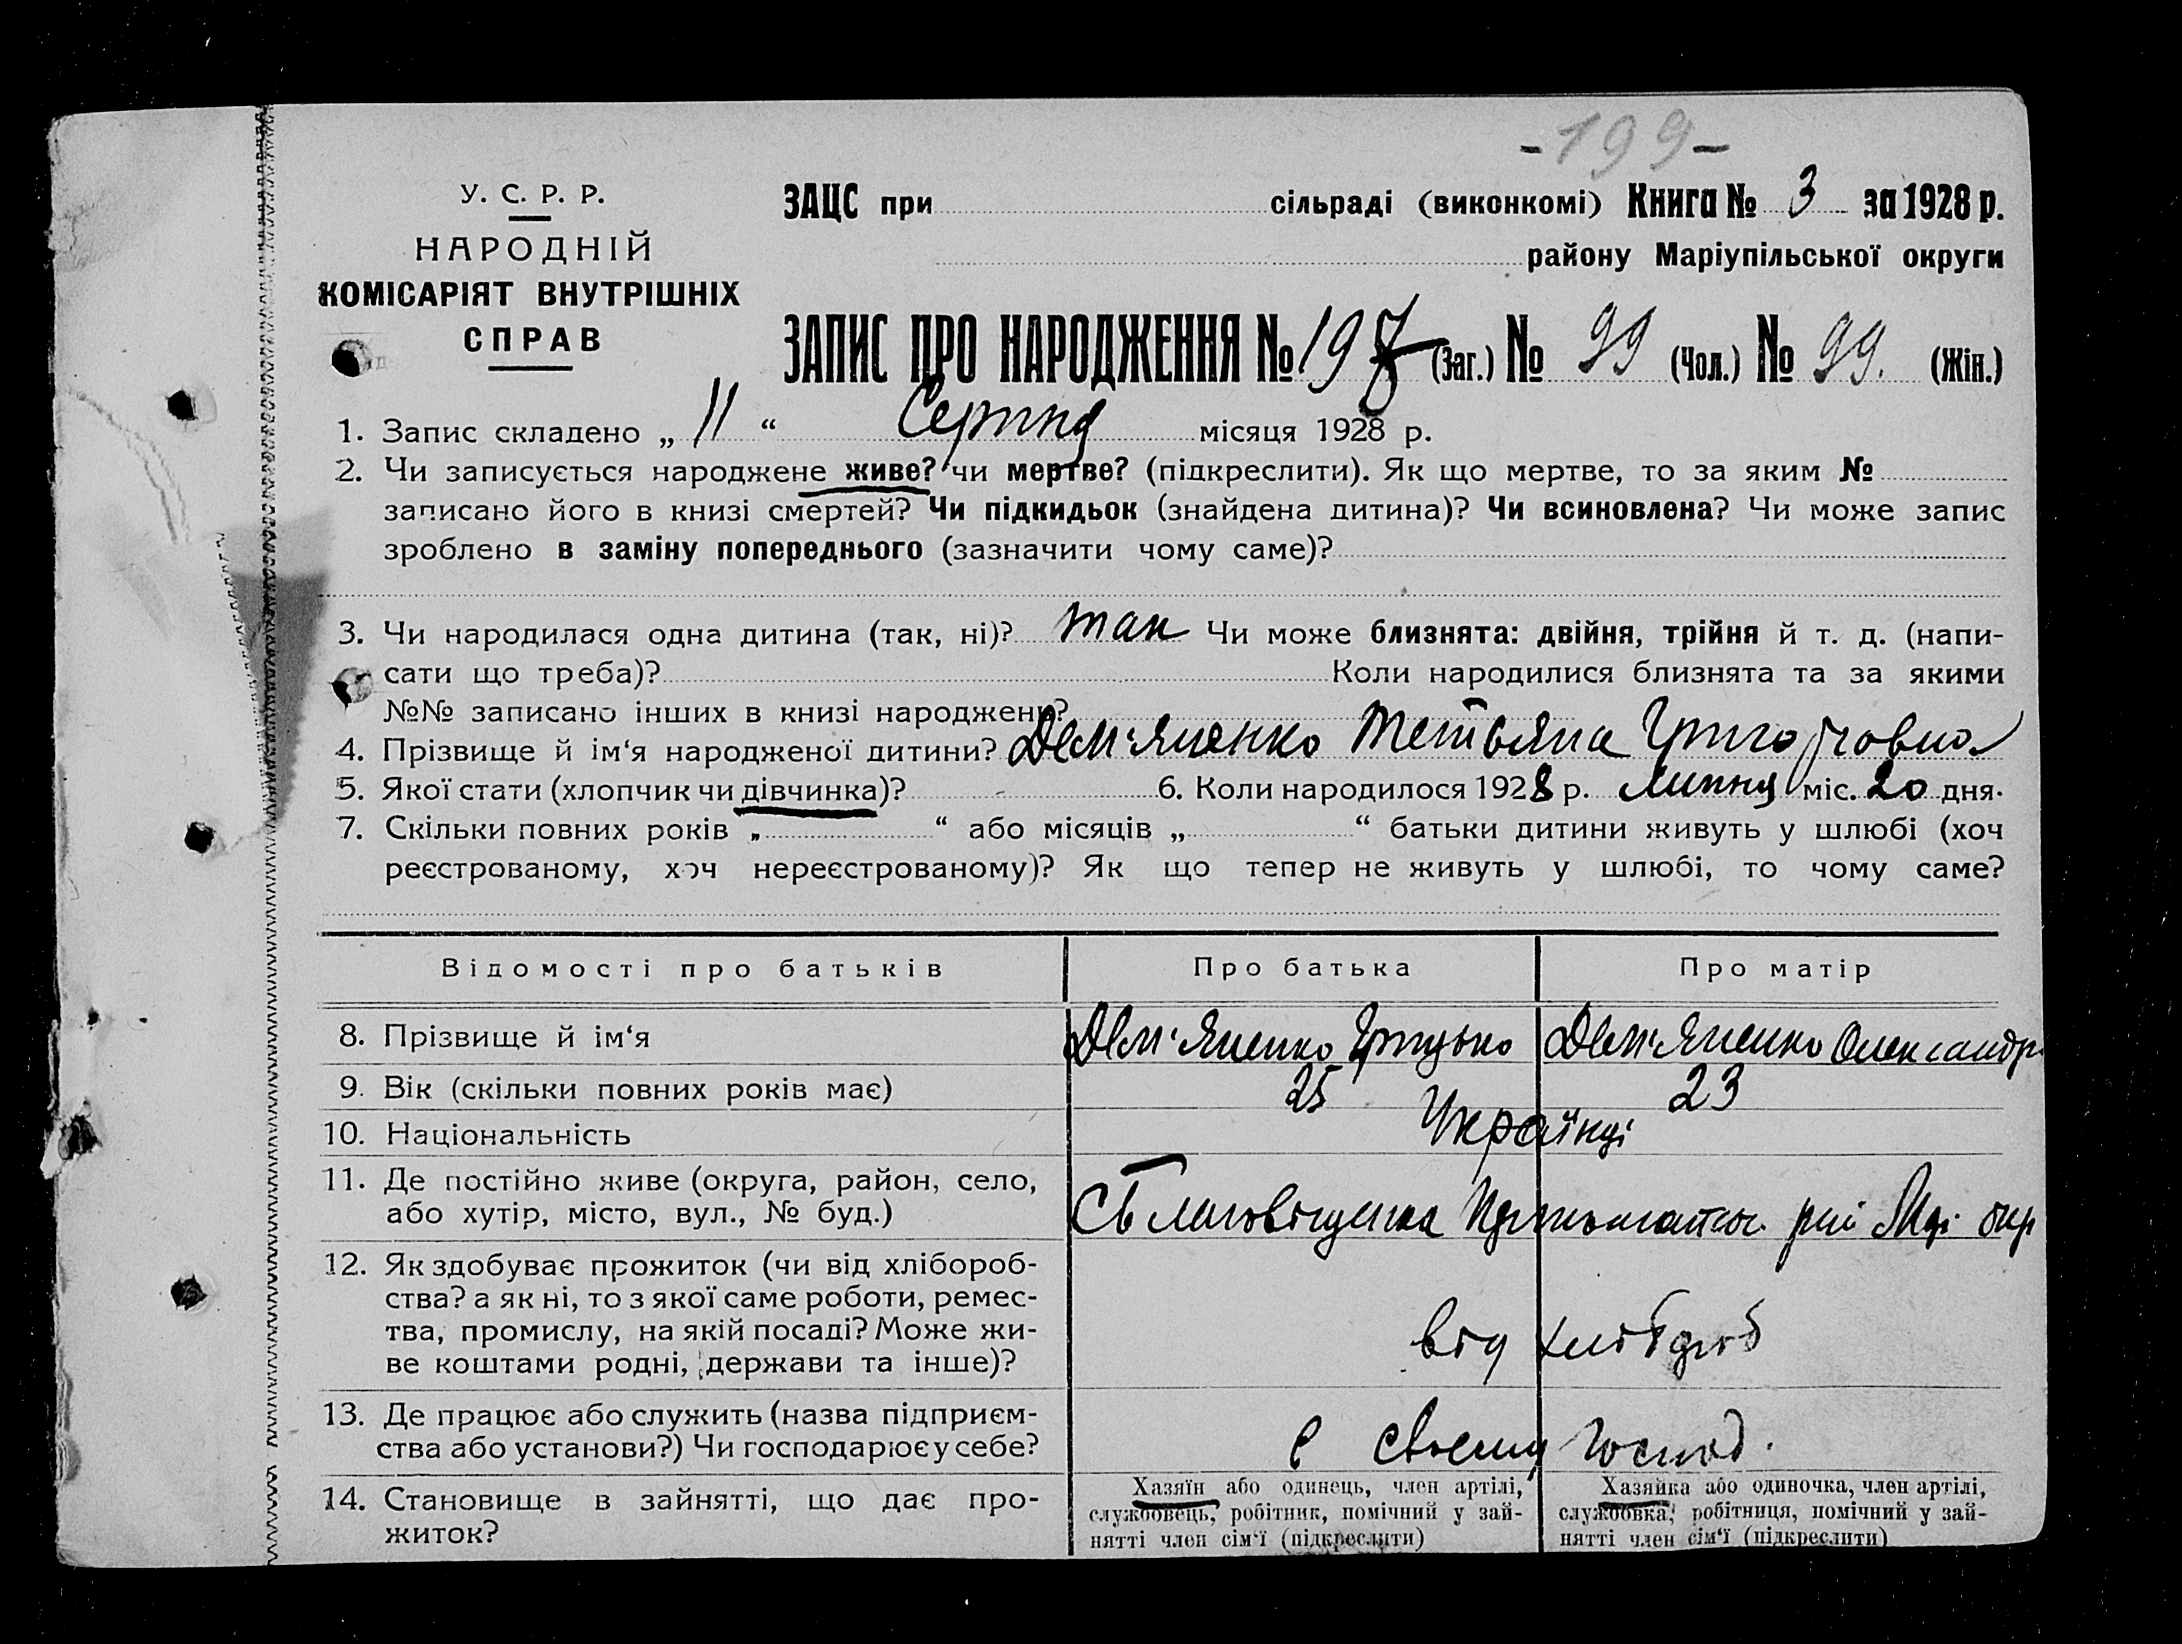 -199-
У. С. Р. Р.
НАРОДНІЙ
КОМІСАРІЯТ ВНУТРІШНІХ
СПРАВ
ЗАЦС при сільраді (виконкомі) Книга № 3 за 1928 р.
району Маріупільської округи
ЗАПИС ПРО НАРОДЖЕННЯ № 197 (Заг.) № 99 (Чол.) № 99. (Жін.)
1. Запис складено „ 11 “ Серпня місяця 1928 р.
2. Чи записується народжене живе? чи мертве? (підкреслити). Як що мертве, то за яким №
записано його в книзі смертей? Чи підкидьок (знайдена дитина)? Чи всиновлена? Чи може запис
зроблено в заміну попереднього (зазначити чому саме)?
3. Чи народилася одна дитина (так, ні)? так Чи може близнята: двійня, трійня й т. д. (напи-
сати що треба)? Коли народилися близнята та за якими
№№ записано інших в книзі народжень?
4. Прізвище й ім‘я народженої дитини? Дем‘яненко Тетьяна Григорровна
5. Якої стати (хлопчик чи дівчинка)? 6. Коли народилося 1928 р. липня міс. 20 дня.
7. Скільки повних років „ “ або місяців „ “ батьки дитини живуть у шлюбі (хоч
реєстрованому, хоч нереєстрованому)? Як що тепер не живуть у шлюбі, то чому саме?
Відомості про батьків Про батька Про матір
8. Прізвище й ім‘я Дем‘яненко Грицько Дем‘яненко Олександр
9. Вік (скільки повних років має) 25 23
10. Національність Українці
11. Де постійно живе (округа, район, село,
або хутір, місто, вул., № буд.)
С Благовіщенка рай Мар. окр
12. Як здобуває прожиток (чи від хлібороб-
ства? а як ні, то з якої саме роботи, ремес-
тва, промислу, на якій посаді? Може жи-
ве коштами родні, держави та інше)?
від хлібороб
13. Де працює або служить (назва підприєм-
ства або установи?) Чи господарює у себе?
в своєму господ.
14. Становище в зайнятті, що дає про-
житок?
Хазяїн або одинець, член артілі,
службовець, робітник, помічний у зай-
нятті член сім‘ї (підкреслити)
Хазяйка або одиночка, член артілі,
службовка, робітниця, помічний у зай-
нятті член сім‘ї (підкреслити)